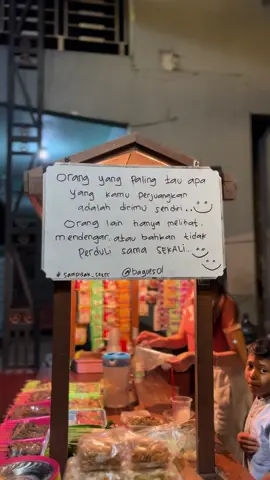 Orang yang paling tau apa
yang kamu perjuangkan
adalah dirimu sendiri..
Orang lain hanya melihat,
mendengar, atau bahkan tidak
perduli sama SEKALI..
@bagues01